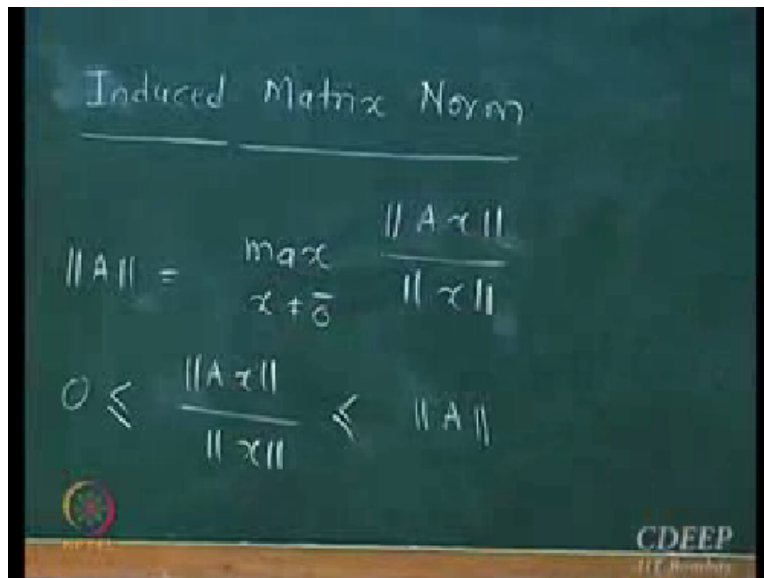 Induced Matrix Norm
||A|| = max x ≠ 0̄ ||Ax|| / ||x||
0 ≤ ||Ax|| / ||x|| ≤ ||A||
NPTEL
CDEEP
IIT Bombay